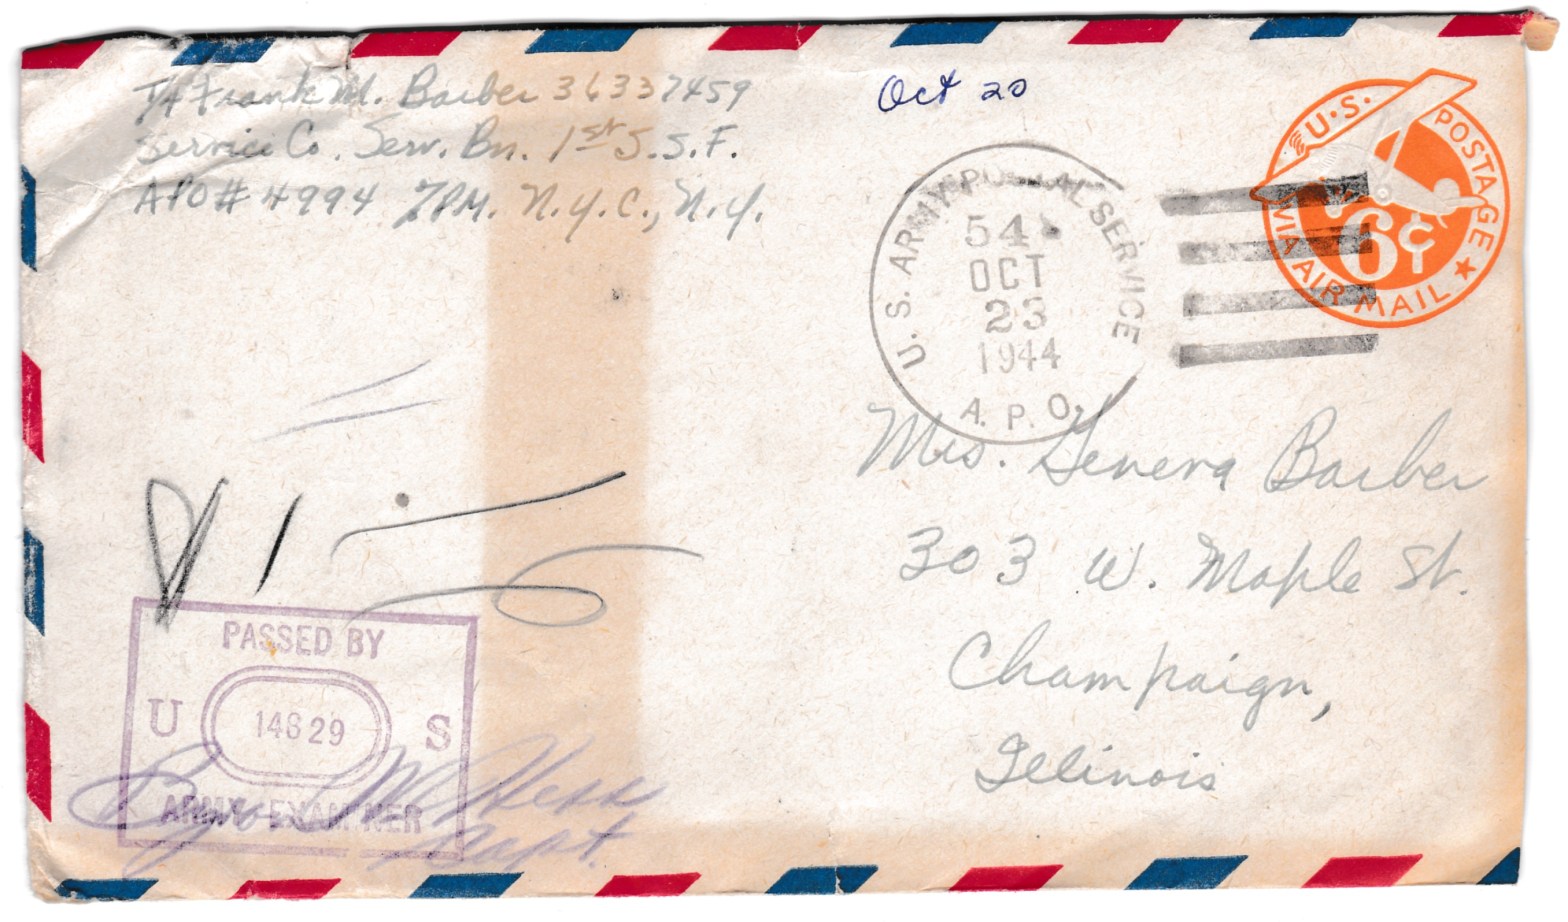 T/4 Frank M. Barber 36337459
Service Co. Serv. Bn. 1st S.S.F.
APO # 4994 %PM. N.Y.C., N.Y.
Oct 20
U.S. ARMY POSTAL SERVICE
54
OCT
23
1944
A.P.O.
U.S. POSTAGE
6¢
VIA AIR MAIL
Mrs. Geneva Barber
303 W. Maple St.
Champaign,
Illinois
PASSED BY
U 14829 S
ARMY EXAMINER
Byron W Hess
Capt.